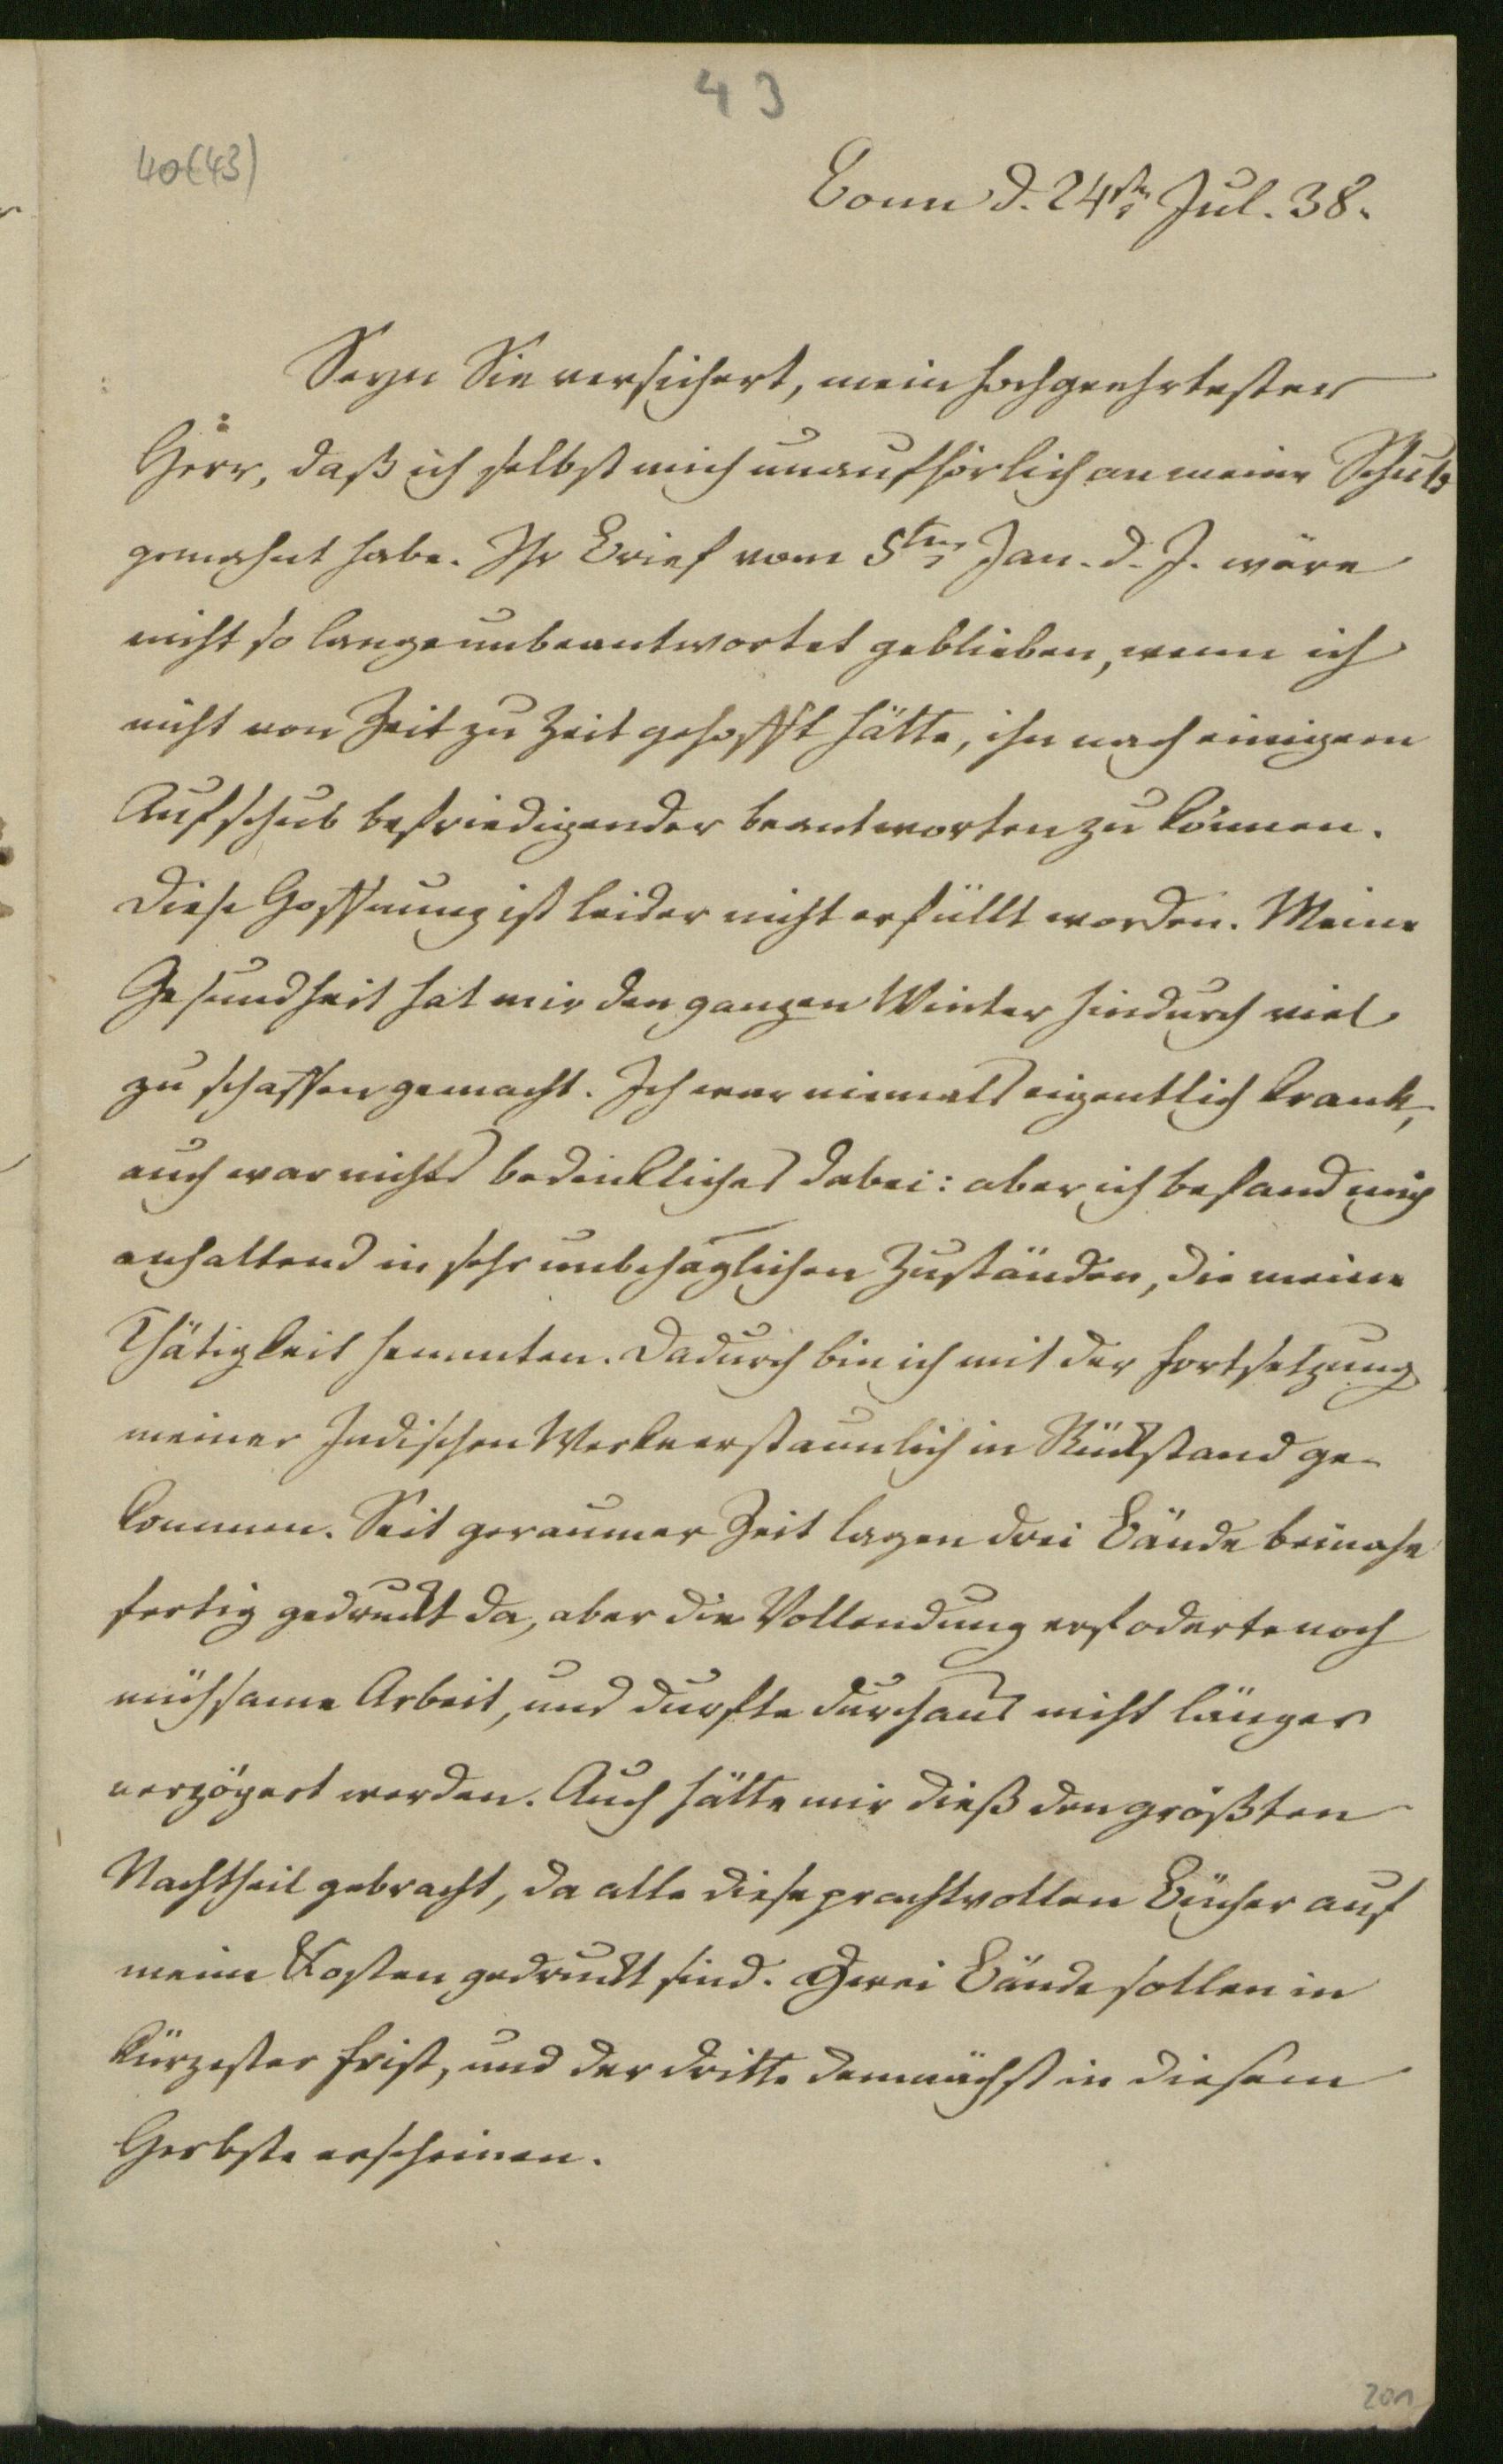 43
40(43)
Bonn d. 24sten Jul. 38.
Seyn Sie versichert, mein hochgeehrtester
Herr, daß ich selbst mich unaufhörlich an meine Schuld
gemahnt habe. Ihr Brief vom 5ten Jan. d. J. wäre
nicht so lange unbeantwortet geblieben, wenn ich
nicht von Zeit zu Zeit gehofft hätte, ihn nach einigem
Aufschub befriedigender beantworten zu können.
Diese Hoffnung ist leider nicht erfüllt worden. Meine
Gesundheit hat mir den ganzen Winter hindurch viel
zu schaffen gemacht. Ich war niemals eigentlich krank,
auch war nichts bedenkliches dabei: aber ich befand mich
anhaltend in sehr unbehaglichen Zuständen, die meine
Thätigkeit hemmten. Dadurch bin ich mit der Fortsetzung
meiner Indischen Werke erstaunlich in Rückstand ge-
kommen. Seit geraumer Zeit lagen drei Bände beinahe
fertig gedruckt da, aber die Vollendung erfoderte noch
mühsame Arbeit, und durfte durchaus nicht länger
verzögert werden. Auch hätte mir dieß den größten
Nachtheil gebracht, da alle diese prachtvollen Bücher auf
meine Kosten gedruckt sind. Zwei Bände sollen in
kürzester Frist, und der dritte demnächst in diesem
Herbste erscheinen.
201